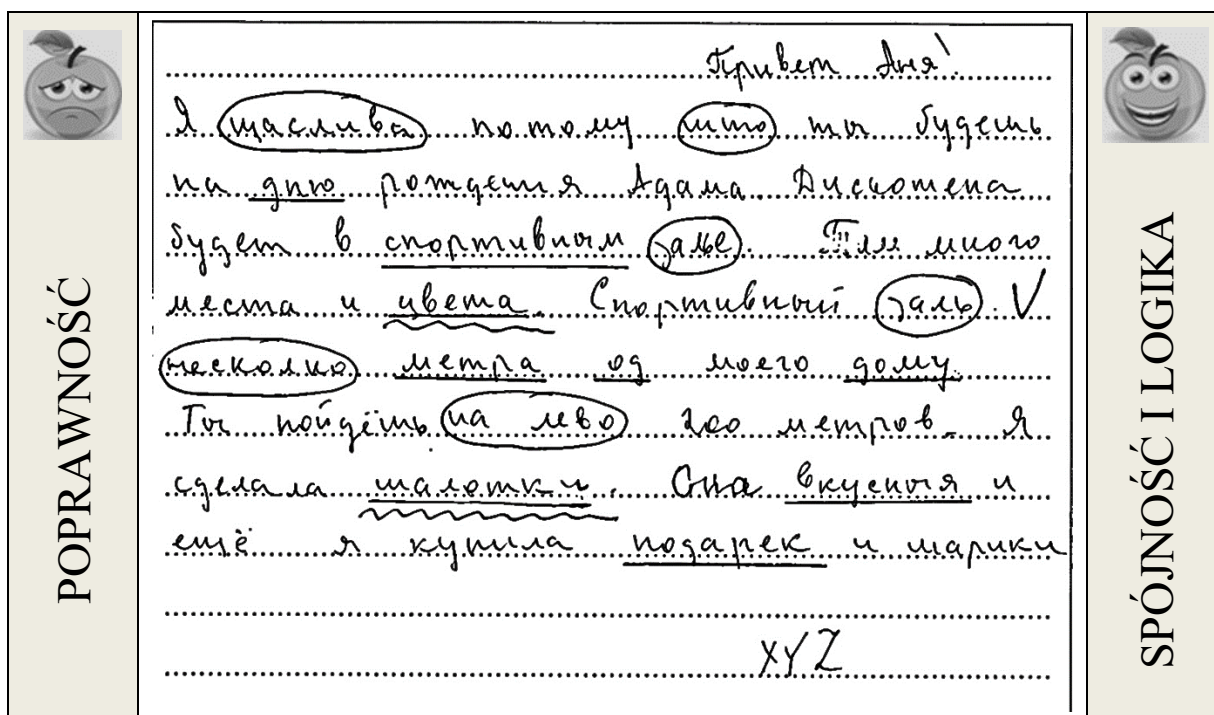 POPRAWNOŚĆ
Привет Аня!
Я щаслива потому што ты будешь
на дню рождения Адама. Дискотека
будет в спортивным зале. Там много
места и цвета. Спортивный заль. V
несколко метра од моего дому.
Ты пойдёшь на лево 200 метров. Я
сделала шалотки. Она вкусныя и
ещё я купила подарек и шарики
XYZ
SPÓJNOŚĆ I LOGIKA